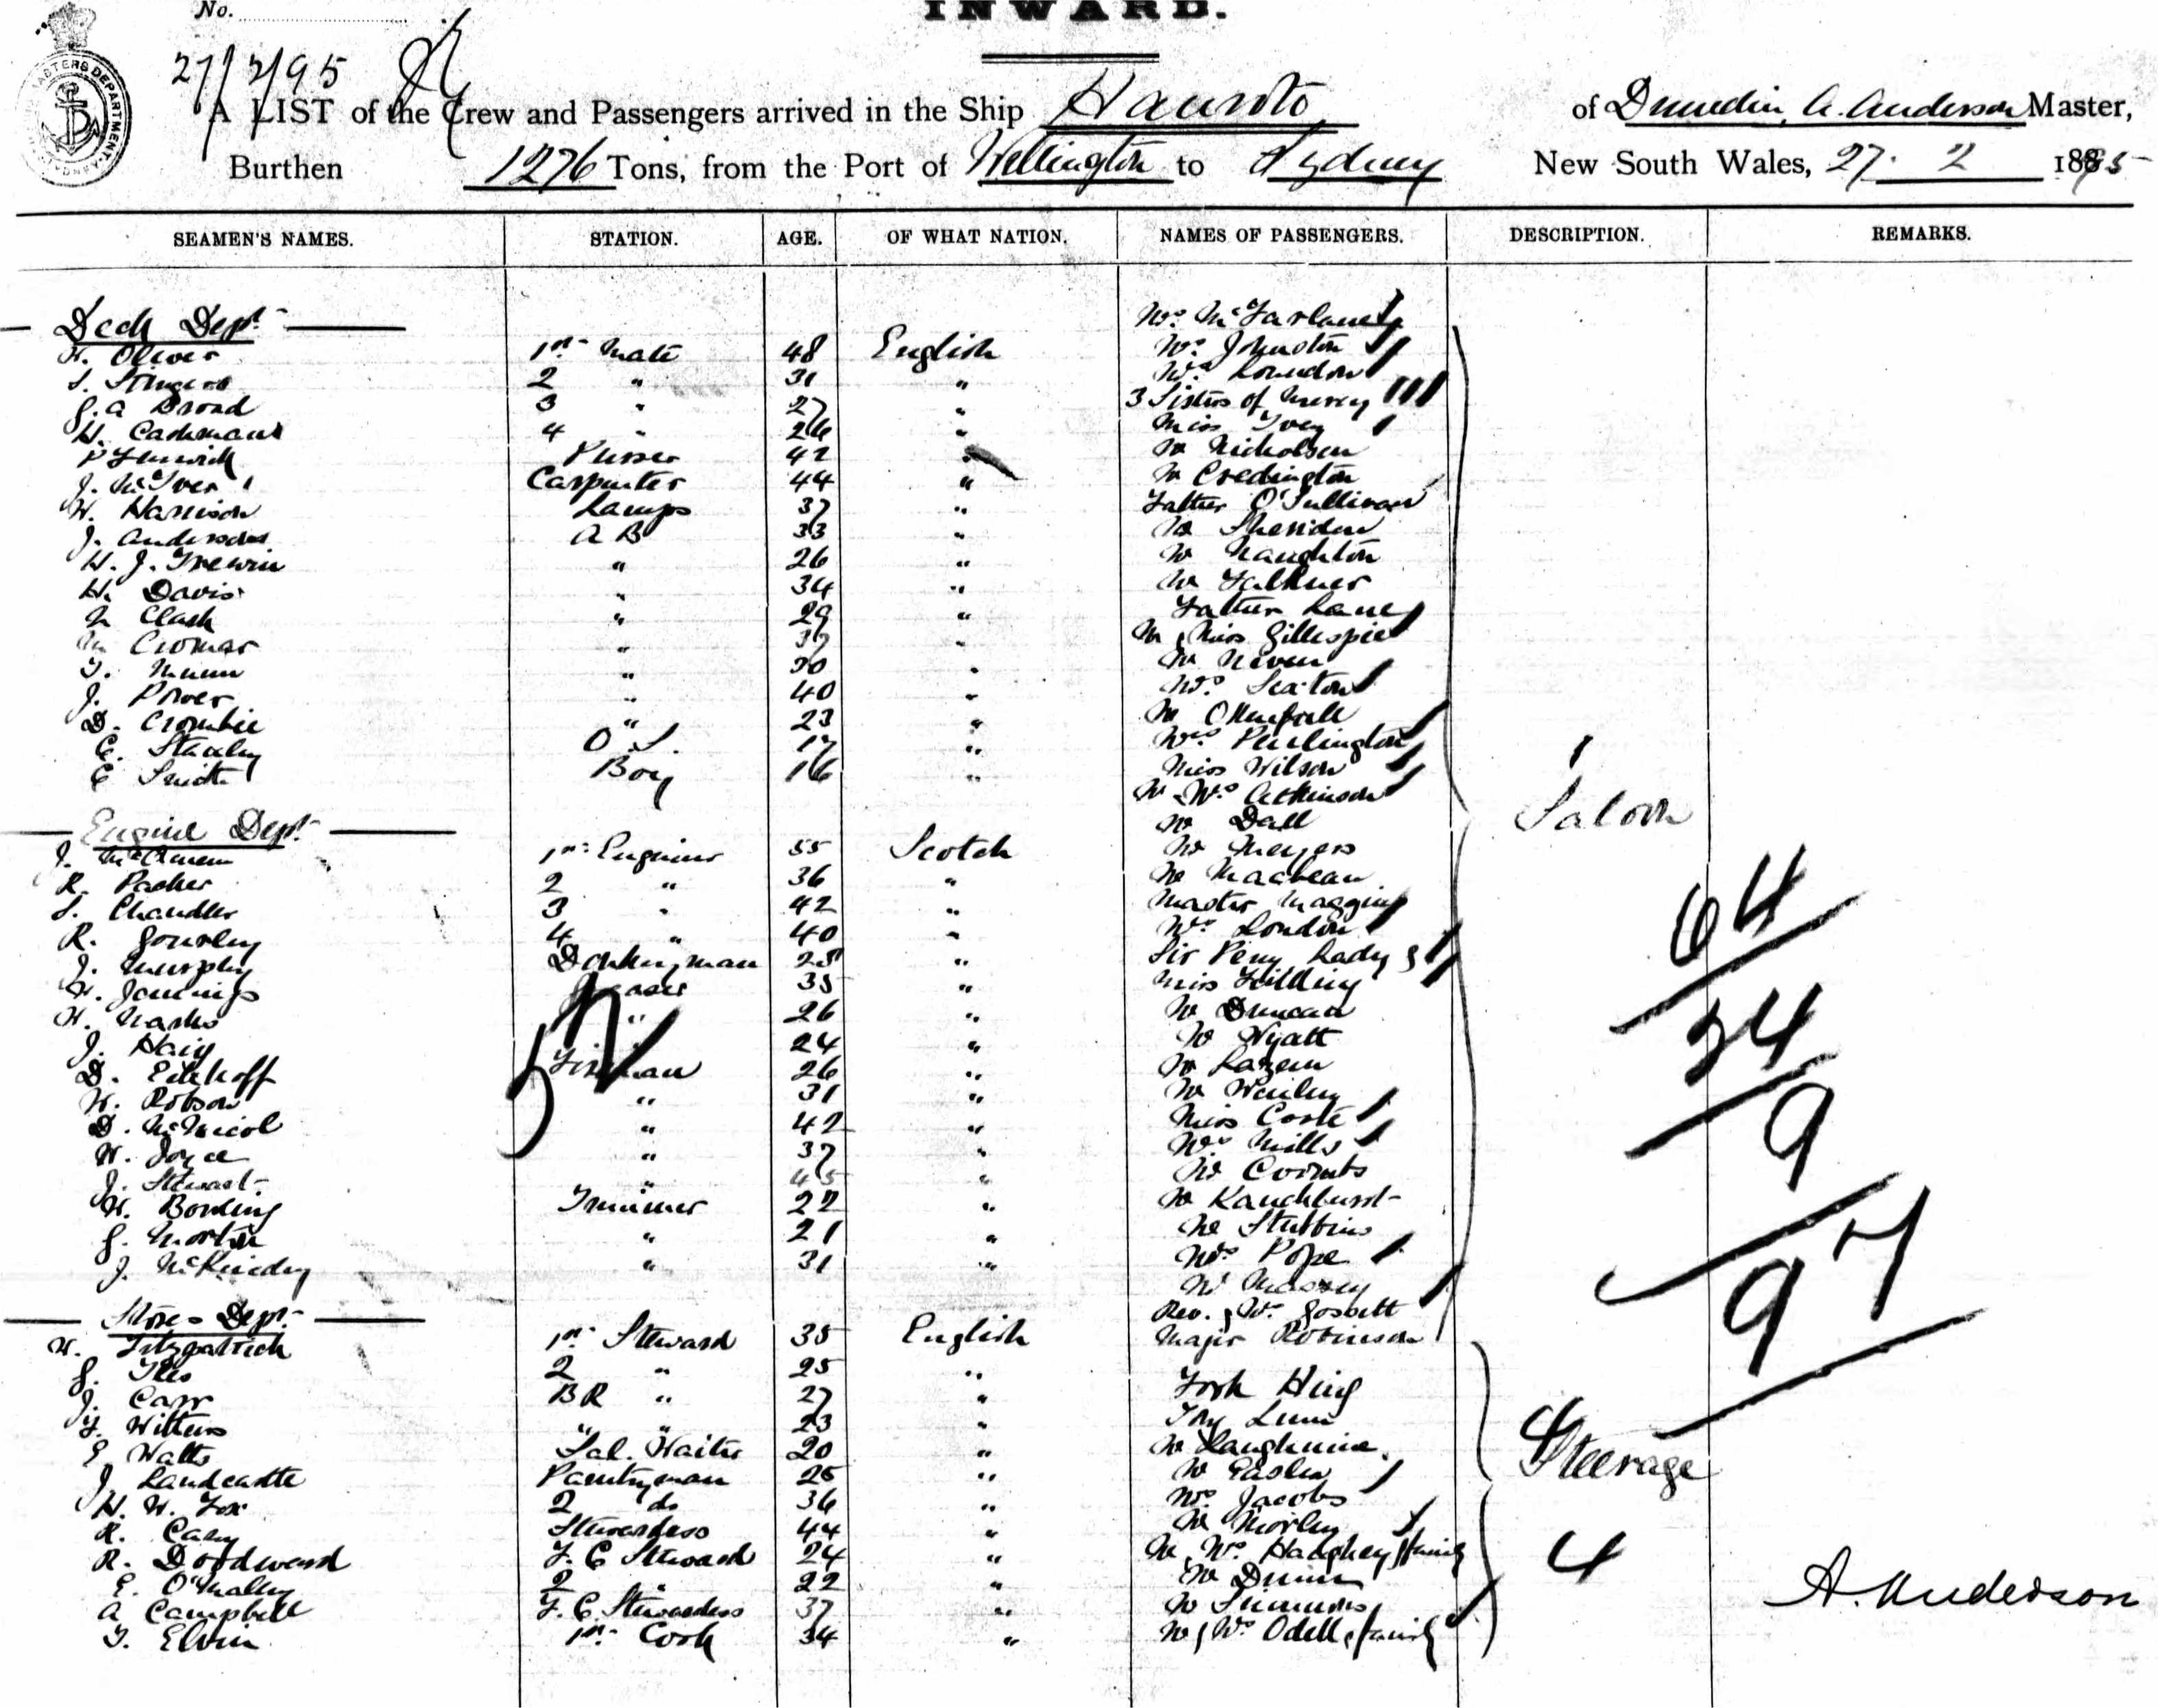 No.
INWARD.
27/2/95
A LIST of the Crew and Passengers arrived in the Ship Hauroto of Dunedin, A. Anderson Master,
Burthen 1276 Tons, from the Port of Wellington to Sydney New South Wales, 27. 2 1895
SEAMEN'S NAMES. STATION. AGE. OF WHAT NATION. NAMES OF PASSENGERS. DESCRIPTION. REMARKS.
Deck Dept. Mrs. McFarlane
H. Oliver 1st Mate 48 English Mrs. Johnston
S. 2 " 31 " Mrs.
G. A Broad 3 " 27 " 3 Sisters of Mercy
H. Cadman 4 " 26 " Miss Ivey
P Fenwick Purser 42 " Mr Nicholson
J. McIver Carpenter 44 " Mr Credington
W. Harrison Lamps 37 " Father O'Sullivan
J. Anderson A B 33 " Mr Sheridan
H. J. Trewin " 26 " Mr Naughton
H. Davis " 34 " Mr Falkner
Clark " 29 " Father Lane
Cromar " 37 " Mr & Miss Gillespie
T. Munn " 30 " Mr Niven
J. Power " 40 " Mrs. Seaton
D. Crombie " 23 " Mr
C. Stanley O.S. 17 " Mrs Purlington
C Smith Boy 16 " Miss Wilson
Mr & Mrs Atkinson
Engine Dept. Mr Dall Saloon
J. 1st Engineer 55 Scotch Mr Meyers
R. Parker 2 " 36 " Mr Macbean
S. Chandler 3 " 42 " Master
R. Gourley 4 " 40 " Mrs London
J. Murphy Donkeyman 28 " Sir Percy Lady &
W. Jennings Greaser 35 " Miss
H. " 26 " Mr Duncan
J. Haig 24 " Mr Wyatt
D. Eickhoff Fireman 26 " Mr
W. Robson " 31 " Mr
D. McNicol " 42 " Miss Coote
W. Joyce " 37 " Mrs Mills
J. Stewart " 45 " Mr Coombs
W. Bowling Trimmer 22 " Mr
G. Mortin " 21 " Mr Stubbins
J. " 31 " Mrs Pope
Mr Massey
Stores Dept. Rev. & Mrs. Gosbett
W. Fitzpatrick 1st Steward 35 English Major Robinson
G. Iles 2 " 25 "
J. Carr BR " 27 " Fook Hing
F. Withers " " 23 " Lum
E Watts Sal. Waiter 20 " Mr
J. Landcastle Pantryman 25 " Mr
H. W. Fox 2 do 36 " Mrs Jacobs
R. Stewardess 44 " Mr Morley
R. Doodward F. C Steward 24 " Mr & Mrs. Haughey & family
E. O'Malley 2 " 22 " Mr Dunn
A Campbell F. C. Stewardess 37 " Mr Simmons
T. Elvin 1st Cook 34 " Mr & Mrs Odell & family
52
64
24
9
97
Steerage
4
A. Anderson